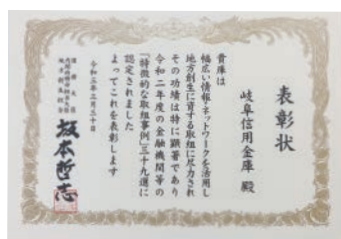 表彰状
岐阜信用金庫 殿
貴庫は
幅広い情報・ネットワークを活用し
地方創生に資する取組に尽力され
その功績は特に顕著であり
令和二年度の金融機関等の
「特徴的な取組事例」三十九選に
認定されました
よってこれを表彰します
令和三年三月三十日
坂本哲志